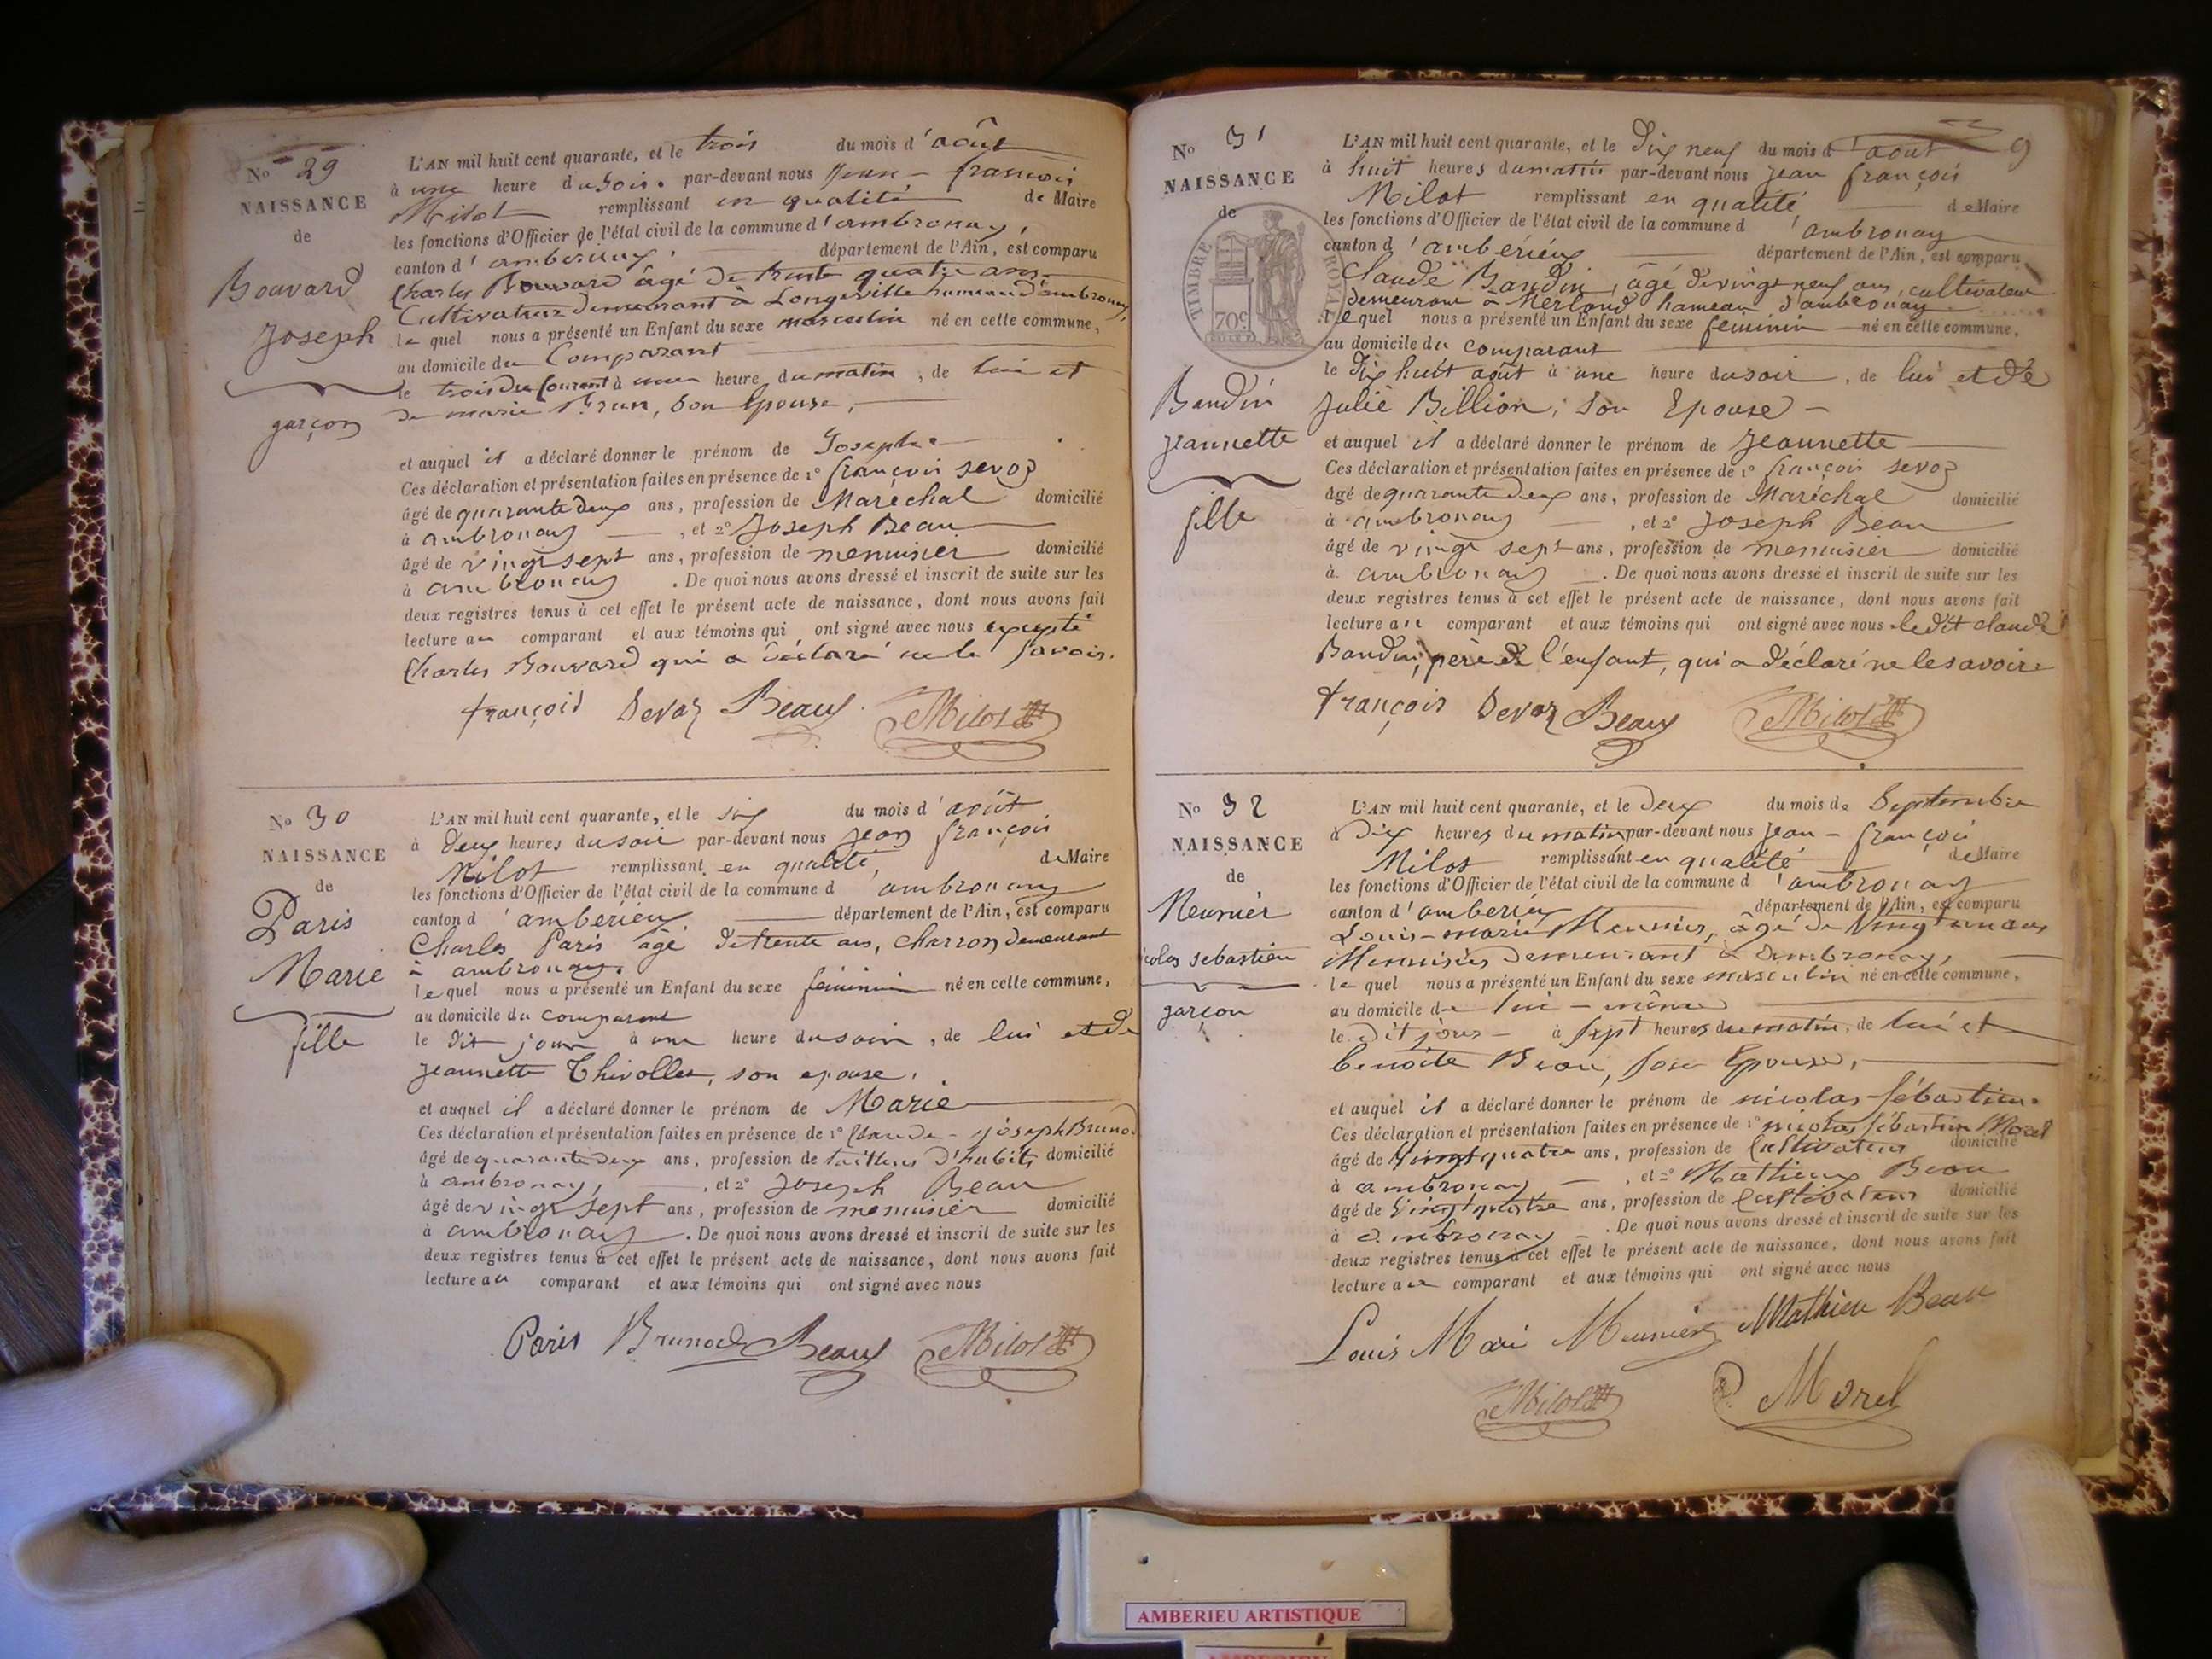 No 29
NAISSANCE
de
Bouvard
Joseph
garçon
L'AN mil huit cent quarante, et le trois du mois d'août
à une heure du soir. par-devant nous Jean - françois
Milot remplissant en qualité de Maire
les fonctions d'Officier de l'état civil de la commune d'ambronay,
canton d' département de l'Ain, est comparu
Charles Bouvard âgé de trente quatre ans
Cultivateur demeurant à Longeville hameau d'ambronay,
le quel nous a présenté un Enfant du sexe masculin né en cette commune,
au domicile du Comparant
le trois du Courant à une heure du matin, de lui et
de marie Brun, son Epouse,
et auquel il a déclaré donner le prénom de Joseph
Ces déclaration et présentation faites en présence de 1° françois sevoz
âgé de quarante deux ans, profession de Maréchal domicilié
à ambronay, et 2° Joseph Beau
âgé de vingt sept ans, profession de menuisier domicilié
à ambronay. De quoi nous avons dressé et inscrit de suite sur les
deux registres tenus à cet effet le présent acte de naissance, dont nous avons fait
lecture au comparant et aux témoins qui ont signé avec nous excepté
Charles Bouvard qui a déclaré ne le savoir.
françois Sevoz Beau Milot
No 30
NAISSANCE
de
Paris
Marie
fille
L'AN mil huit cent quarante, et le six du mois d'août
à deux heures du soir par-devant nous Jean françois
Milot remplissant en qualité, de Maire
les fonctions d'Officier de l'état civil de la commune d ambronay
canton d'ambérieux département de l'Ain, est comparu
Charles Paris âgé de trente ans, charron demeurant
à ambronay.
lequel nous a présenté un Enfant du sexe féminin né en cette commune,
au domicile du comparant
le dit jour à une heure du soir, de lui et de
Jeannette Thivollet, son epouse,
et auquel il a déclaré donner le prénom de Marie
Ces déclaration et présentation faites en présence de 1° Claude - joseph Brunod
âgé de quarante deux ans, profession de tailleur d'habits domicilié
à ambronay, et 2° Joseph Beau
âgé de vingt sept ans, profession de menuisier domicilié
à ambronay. De quoi nous avons dressé et inscrit de suite sur les
deux registres tenus à cet effet le présent acte de naissance, dont nous avons fait
lecture au comparant et aux témoins qui ont signé avec nous
Paris Brunod Beau Milot
9
No 31
NAISSANCE
de
TIMBRE ROYAL
70c
Baudin
Jeannette
fille
L'AN mil huit cent quarante, et le Dix neuf du mois d'aout
à huit heures du matin par-devant nous Jean françois
Milot remplissant en qualité de Maire
les fonctions d'Officier de l'état civil de la commune d'ambronay
canton d'ambérieux département de l'Ain, est comparu
Claude Baudin, âgé de vingt neuf ans, cultivateur
demeurant à Merland hameau d'ambronay
lequel nous a présenté un Enfant du sexe féminin né en cette commune,
au domicile du comparant
le Dix huit août à une heure du soir, de lui et de
Julie Billion, son Epouse -
et auquel il a déclaré donner le prénom de Jeannette
Ces déclaration et présentation faites en présence de 1° françois sevoz
âgé de quarante deux ans, profession de Maréchal domicilié
à ambronay, et 2° Joseph Beau
âgé de vingt sept ans, profession de menuisier domicilié
à ambronay. De quoi nous avons dressé et inscrit de suite sur les
deux registres tenus à cet effet le présent acte de naissance, dont nous avons fait
lecture au comparant et aux témoins qui ont signé avec nous ledit claude
Baudin, père de l'enfant, qui a déclaré ne le savoir
françois Sevoz Beau Milot
No 32
NAISSANCE
de
Meunier
icolas sebastien
garçon
L'AN mil huit cent quarante, et le Deux du mois de Septembre
à dix heures du matin par-devant nous Jean - françois
Milot remplissant en qualité de Maire
les fonctions d'Officier de l'état civil de la commune d'ambronay
canton d'amberieu département de l'Ain, est comparu
Louis-marie Meunier, âgé de Vingt un ans
Menuisier demeurant à ambronay,
le quel nous a présenté un Enfant du sexe masculin né en cette commune,
au domicile de lui - même
le dit jour - à sept heures du matin, de lui et
benoite Beau, son Epouse,
et auquel il a déclaré donner le prénom de nicolas-sébastien.
Ces déclaration et présentation faites en présence de 1° nicolas sébastien Morel
âgé de Vingt quatre ans, profession de Cultivateur domicilié
à ambronay, et 2° Mathieu Beau
âgé de Vingt quatre ans, profession de Cultivateur domicilié
à ambronay. De quoi nous avons dressé et inscrit de suite sur les
deux registres tenus à cet effet le présent acte de naissance, dont nous avons fait
lecture au comparant et aux témoins qui ont signé avec nous
Louis Mari Meunier Mathieu Beau
Milot Morel
AMBERIEU ARTISTIQUE